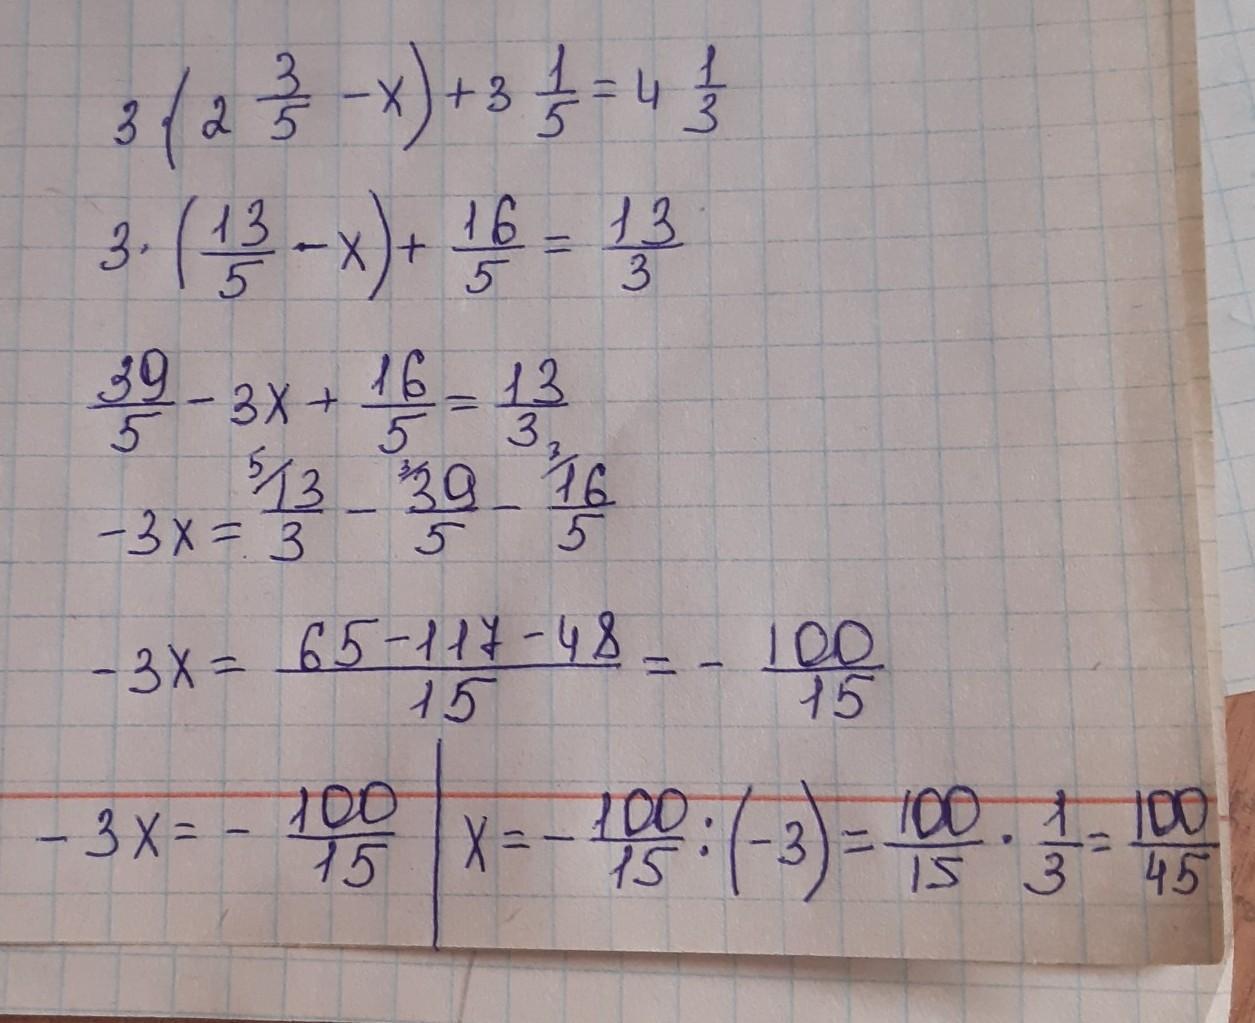 3·(2 3/5 - x) + 3 1/5 = 4 1/3
3·(13/5 - x) + 16/5 = 13/3
39/5 - 3x + 16/5 = 13/3
-3x = 5/ 13/3 - 3/ 39/5 - 3/ 16/5
-3x = (65-117-48)/15 = - 100/15
-3x = - 100/15 | x = - 100/15 : (-3) = 100/15 · 1/3 = 100/45